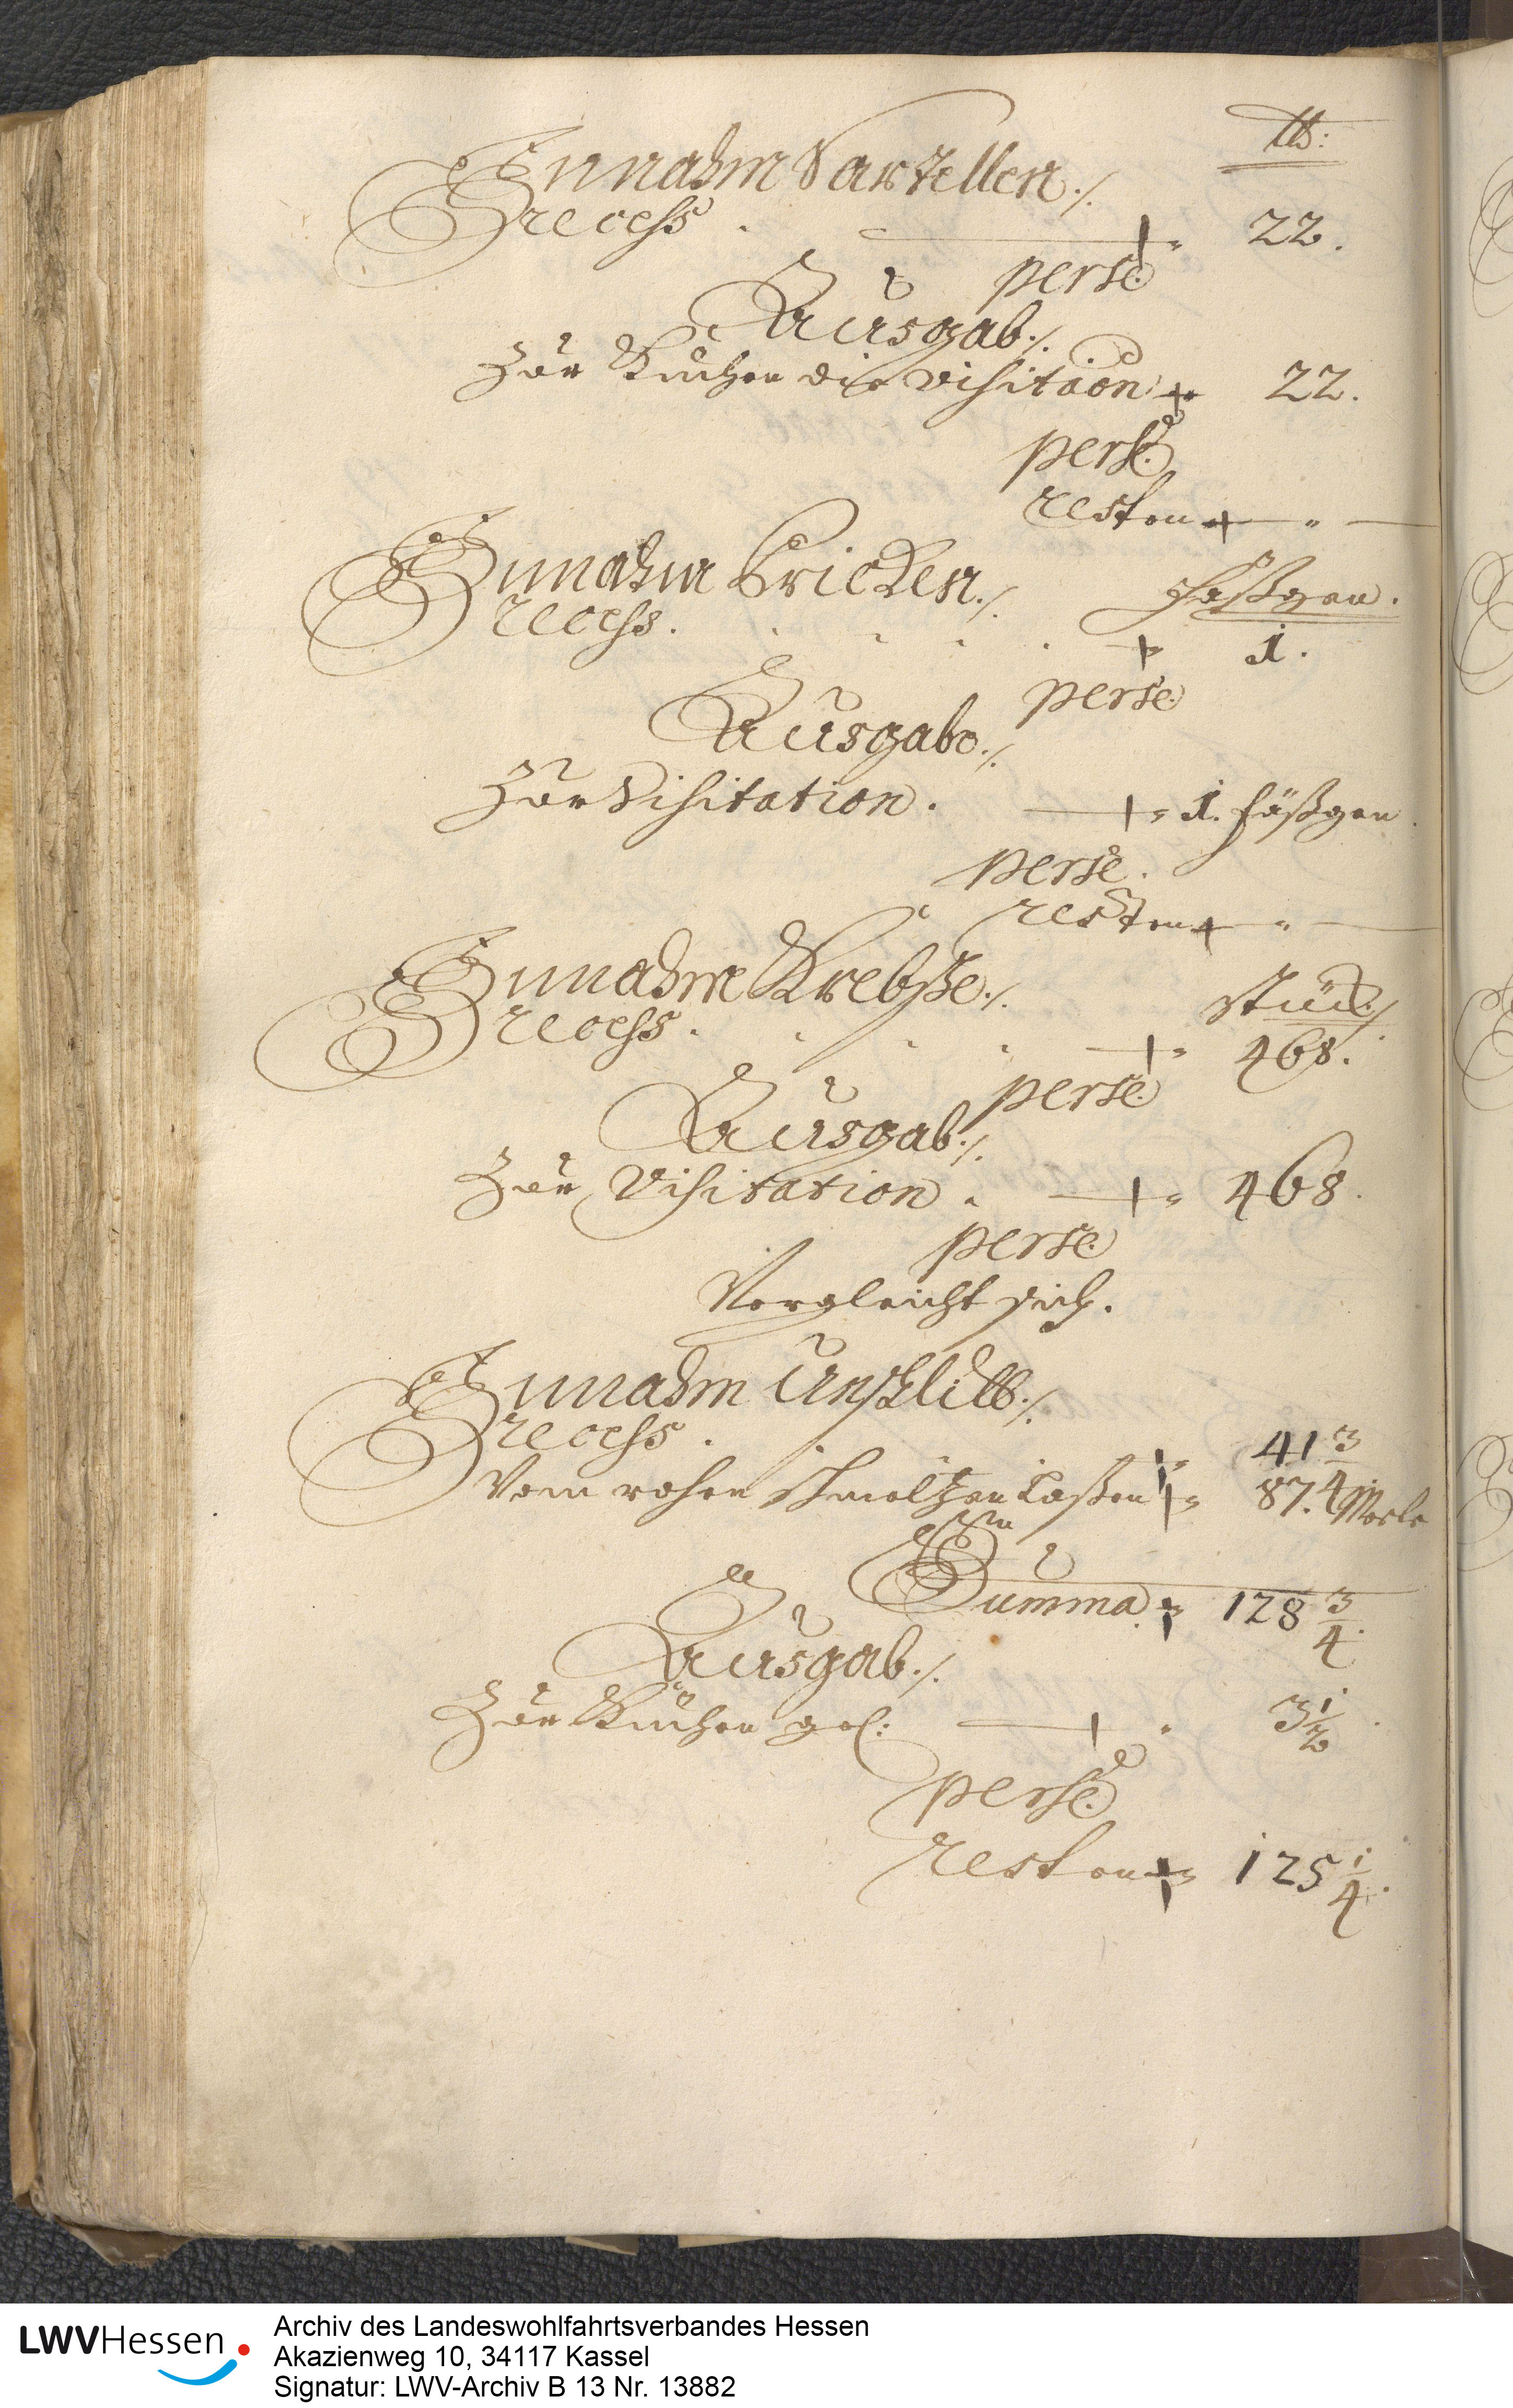 ℔:
Einnahm Sartellen ./.
recess . 22.
per se
Ausgab ./.
Zur Küchen die Visitaon 22.
per se
resten "
Einnahm Bricken ./. Feßgen.
recess . 1.
per se
Ausgabe ./.
Zur Visitation . 1. fäßgen
per se.
resten "
Einnahme Krebße ./. stück
recess . 468.
per se
Ausgab ./.
Zur Visitation . 468.
per se
Vergleicht sich.
Einnahm Unschlitt ./.
recess . 41 3/4
Vom rohen schmeltzen laßen 87.
Summa 128 3/4.
Ausgab ./.
Zur Küchen gel: 3 1/2.
per se
resten 125 1/4.
LWVHessen
Archiv des Landeswohlfahrtsverbandes Hessen
Akazienweg 10, 34117 Kassel
Signatur: LWV-Archiv B 13 Nr. 13882